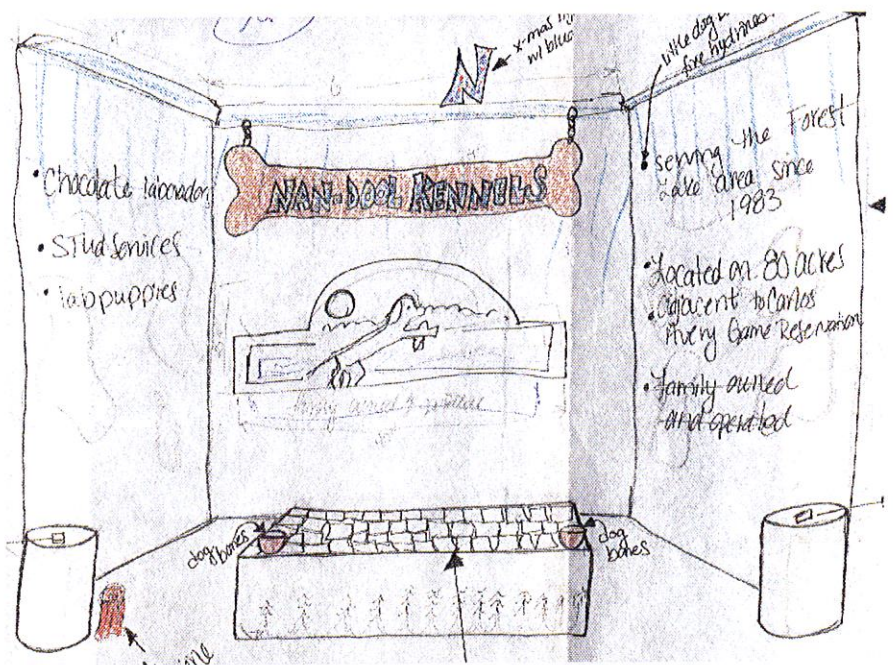 x-mas
w/ blue
N
little dog
fire hydrants
NAN-DOOL KENNELS
• Chocolate labrador
• Stud Services
• lab puppies
• serving the Forest
Lake area since
1983
• Located on 80 acres
• adjacent to Carlos
Avery Game Reservation
• Family owned
and operated
6
dog
bones
dog
bones